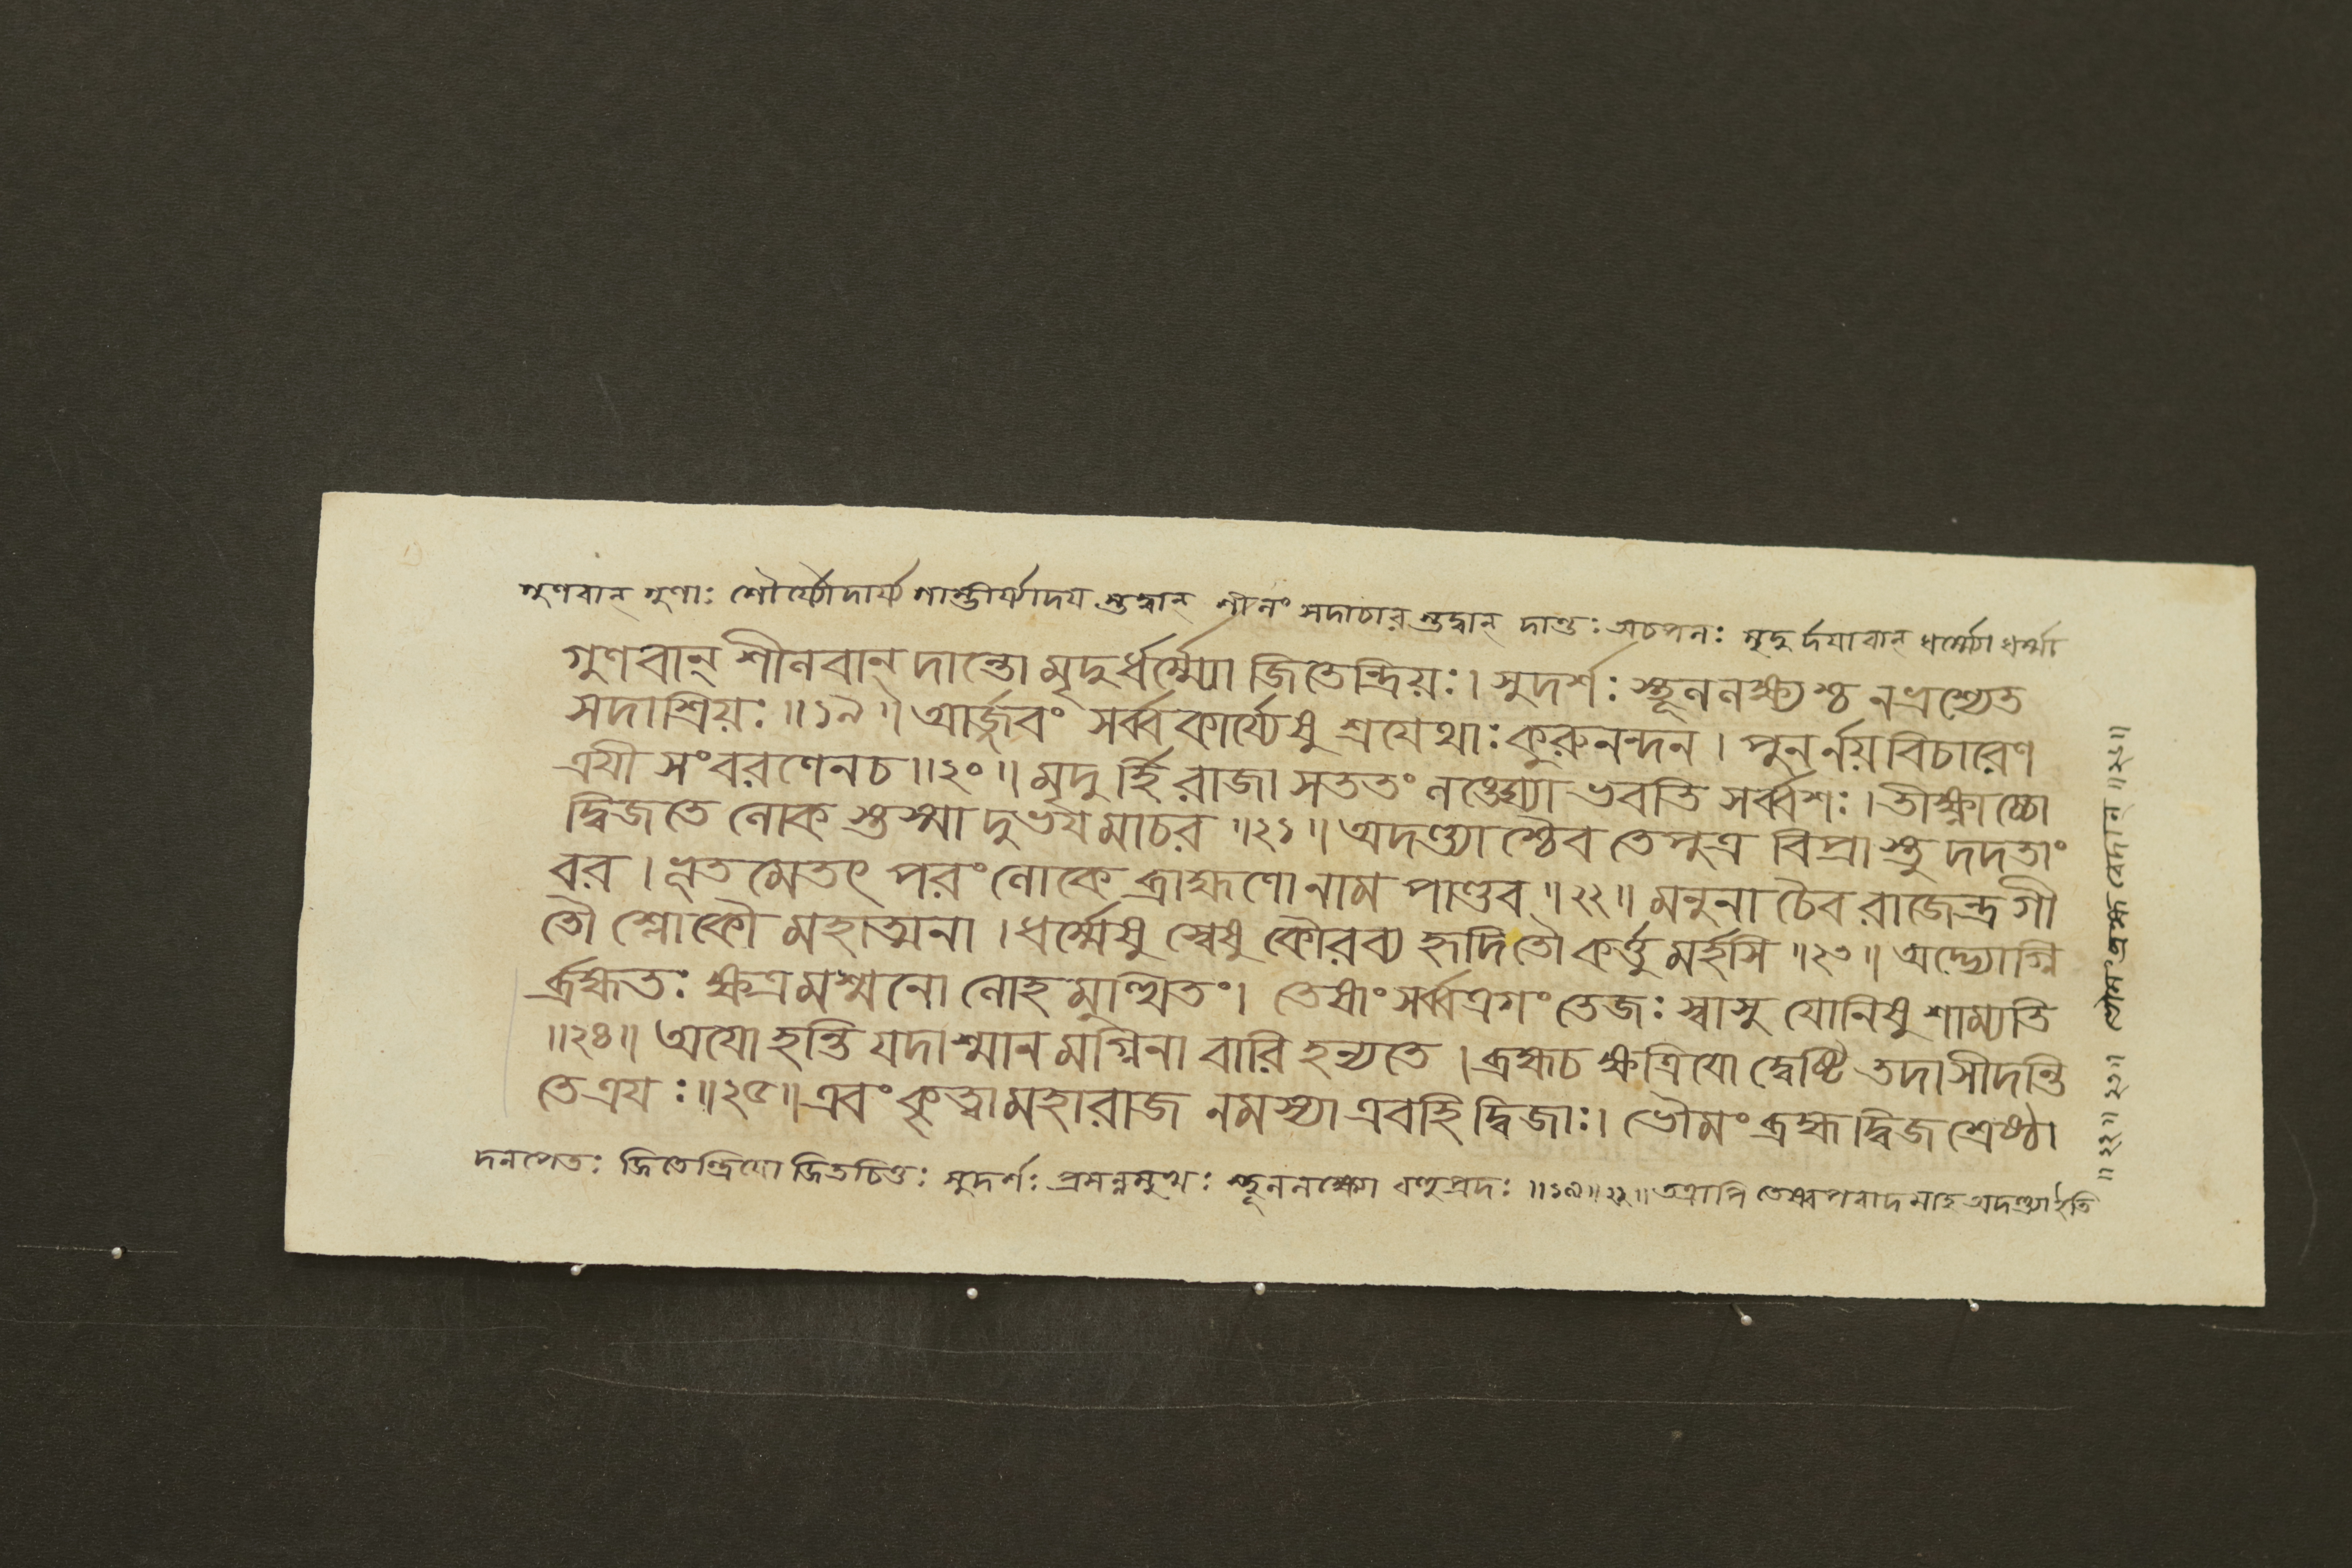 গুণবান্ গুণাঃ শৌর্য্যৌদার্য্য গাম্ভীর্য্যাদয় স্তদ্বান্ শীলং সদাচার স্তদ্বান্ দান্তঃ অচপলঃ মৃদুর্দয়াবান্ ধর্ম্ম্যো ধর্ম্মা
গুণবান্ শীলবান্ দান্তো মৃদুর্ধর্ম্ম্যো জিতেন্দ্রিয়ঃ। সুদর্শঃ স্থূললক্ষ্যশ্চ নভ্রশ্যেত
সদাশ্রিয়ঃ॥১৯॥ আর্জ্জবং সর্ব্বকার্য্যেষু শ্রয়েথাঃ কুরুনন্দন। পুনর্নয়বিচারেণ
ত্রয়ী সংবরণেনচ॥২০॥ মৃদুর্হি রাজা সততং লঙ্ঘ্যো ভবতি সর্ব্বশঃ। তীক্ষ্ণাচ্চো
দ্বিজতে লোক স্তস্মা দুভয়মাচর॥২১॥ অদণ্ড্যাশ্চৈব তেপুত্র বিপ্রাস্তু দদতাং
বর। ভূতমেতৎ পরং লোকে ব্রাহ্মণো নাম পাণ্ডব॥২২॥ মনুনা চৈব রাজেন্দ্র গী
তৌ শ্লোকৌ মহাত্মনা। ধর্ম্মেষু স্বেষু কৌরব্য হৃদি তৌ কর্ত্তুমর্হসি॥২৩॥ অদ্ভ্যোগ্নি
র্ব্রহ্মতঃ ক্ষত্রমশ্মনো লোহমুত্থিতং। তেষাং সর্ব্বত্রগং তেজঃ স্বাসু যোনিষু শাম্যতি
॥২৪॥ অয়ো হন্তি যদাশ্মানমগ্নিনা বারি হন্যতে। ব্রহ্মচ ক্ষত্রিয়ো দ্বেষ্টি তদাসীদন্তি
তেত্রয়ঃ॥২৫॥ এবং কৃত্বা মহারাজ নমস্যা এবহি দ্বিজাঃ। ভৌমং ব্রহ্ম দ্বিজশ্রেষ্ঠা
দনপেতঃ জিতেন্দ্রিয়ো জিতচিত্তঃ সুদর্শঃ প্রসন্নমুখঃ স্থূললক্ষ্যো বহুপ্রদঃ॥১৯॥২১॥ তত্রাপি তেষ্বপবাদমাহ অদণ্ড্যাইতি
॥২২॥ ২১॥ ভৌমং ব্রহ্ম বেদান্ ॥২২॥